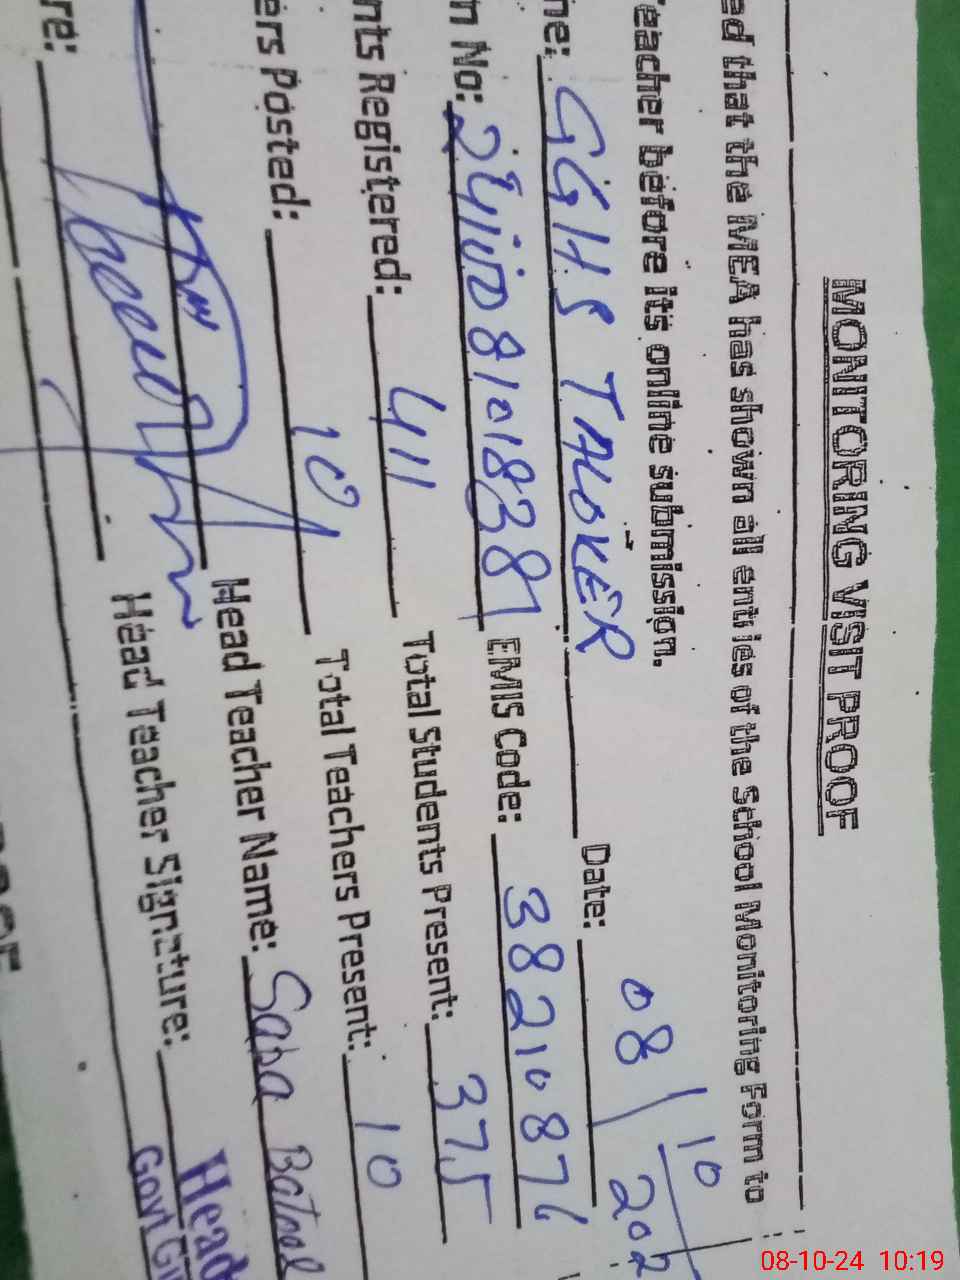 MONITORING VISIT PROOF
ed that the MEA has shown all entries of the School Monitoring Form to
eacher before its online submission.
me: GGHS TALOKER Date: 08/10/202
n No: EMIS Code: 38210876
nts Registered: 411 Total Students Present: 375
ers Posted: 10 Total Teachers Present: 10
Head Teacher Name: Saba Batool
re: Head Teacher Signature:
Head
Govt Gi
08-10-24 10:19